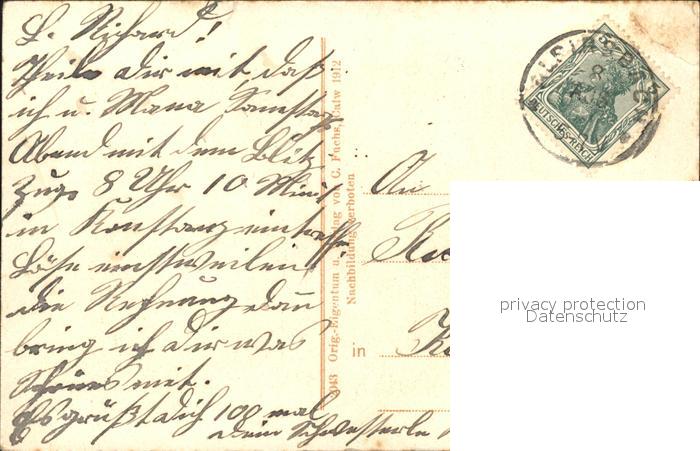 L. Richard!
Theile dir mit, daß
ich u. Mama Samstag
Abend mit dem Blitz
Zug 8 Uhr 10 Minut
in Konstanz eintreffen
Löse einstweilen
die Rechnung dan
bring ich dir was
Schönes mit.
Es grüßt dich 100 mal
dein Schwesterle
6043 Orig.-Eigentum u. Verlag von C. Fuchs, Calw 1912
Nachbildung verboten
DEUTSCHES REICH
An
in
privacy protection
Datenschutz